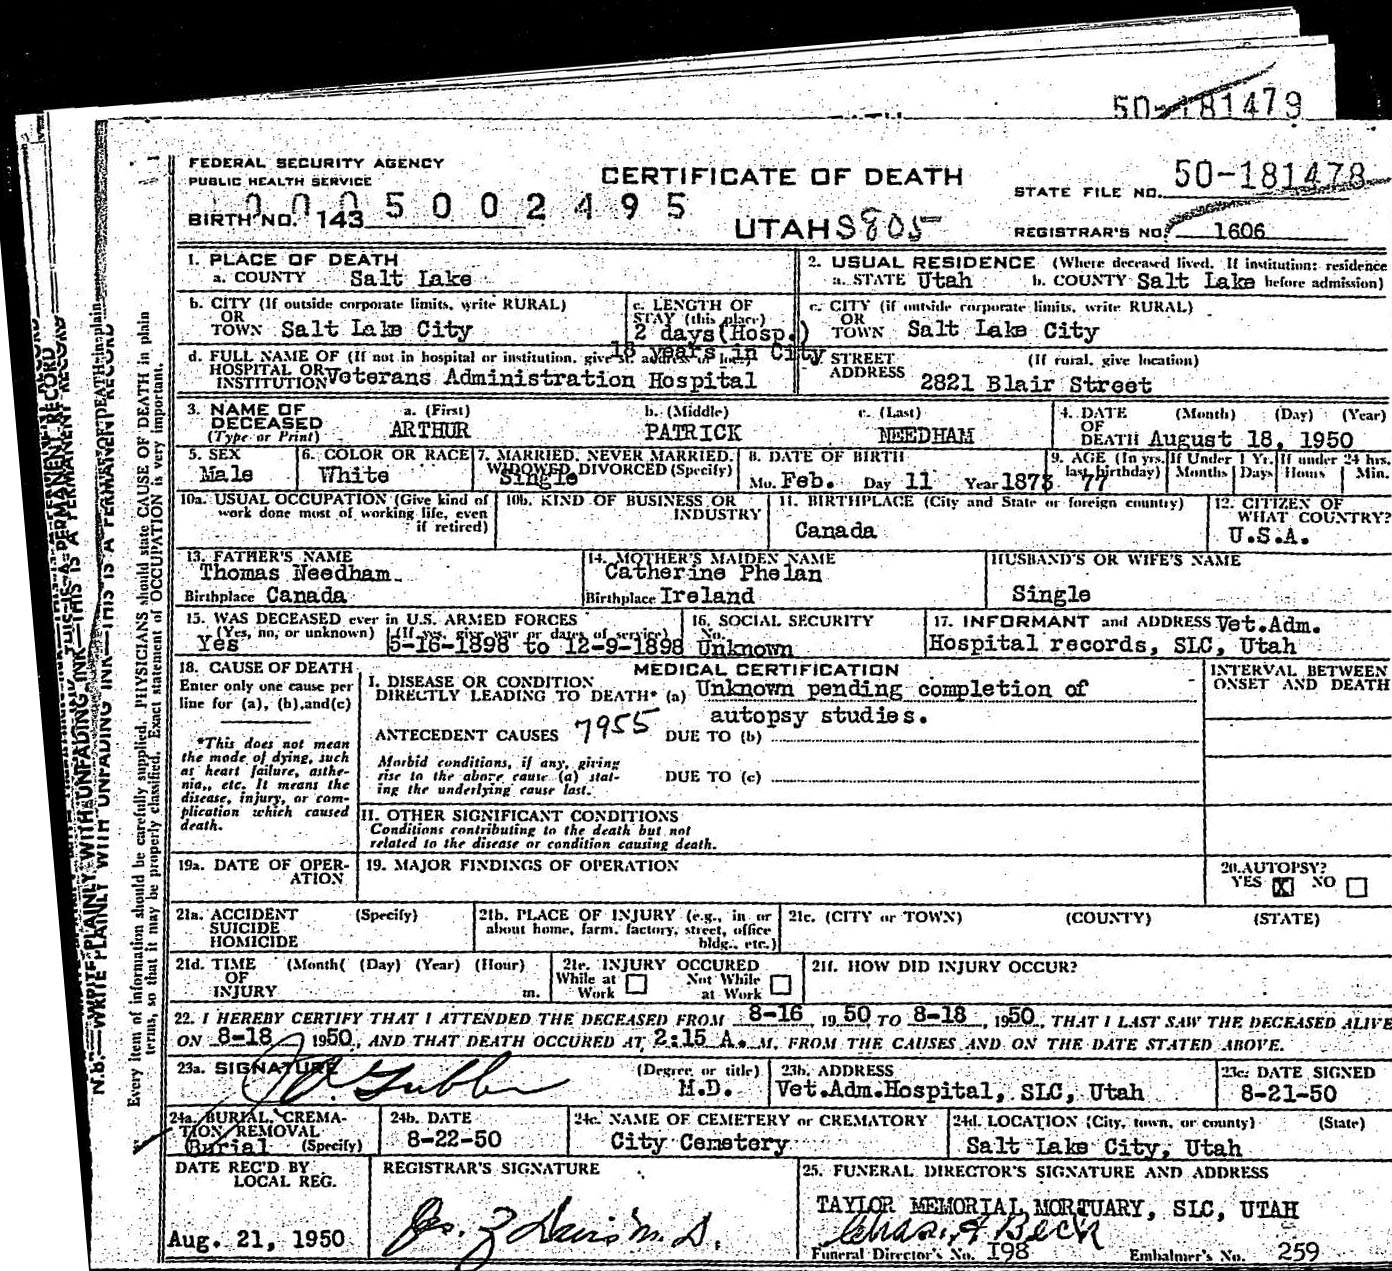 50-181479
FEDERAL SECURITY AGENCY
PUBLIC HEALTH SERVICE
CERTIFICATE OF DEATH
STATE FILE NO. 50-181478
0005002495
BIRTH NO. 143
UTAH S805
REGISTRAR'S NO. 1606
1. PLACE OF DEATH
a. COUNTY Salt Lake
2. USUAL RESIDENCE (Where deceased lived. If institution: residence before admission)
a. STATE Utah b. COUNTY Salt Lake
b. CITY (If outside corporate limits, write RURAL) OR TOWN Salt Lake City
c. LENGTH OF STAY (this place) 2 days (Hosp.)
18 years in City
c. CITY (if outside corporate limits, write RURAL) OR TOWN Salt Lake City
d. FULL NAME OF (If not in hospital or institution, give st. address or loc.)
HOSPITAL OR INSTITUTION Veterans Administration Hospital
STREET ADDRESS (If rural, give location)
2821 Blair Street
3. NAME OF DECEASED (Type or Print)
a. (First) ARTHUR
b. (Middle) PATRICK
c. (Last) NEEDHAM
4. DATE OF DEATH (Month) (Day) (Year)
August 18, 1950
5. SEX Male
6. COLOR OR RACE White
7. MARRIED, NEVER MARRIED, WIDOWED, DIVORCED (Specify) Single
8. DATE OF BIRTH
Mo. Feb. Day 11 Year 1873
9. AGE (In yrs. last birthday) 77
If Under 1 Yr. Months Days
If under 24 hrs. Hours Min.
10a. USUAL OCCUPATION (Give kind of work done most of working life, even if retired)
10b. KIND OF BUSINESS OR INDUSTRY
11. BIRTHPLACE (City and State or foreign country)
Canada
12. CITIZEN OF WHAT COUNTRY?
U.S.A.
13. FATHER'S NAME
Thomas Needham
Birthplace Canada
14. MOTHER'S MAIDEN NAME
Catherine Phelan
Birthplace Ireland
HUSBAND'S OR WIFE'S NAME
Single
15. WAS DECEASED ever in U.S. ARMED FORCES
(Yes, no, or unknown) (If yes, give war or dates of service)
Yes 5-16-1898 to 12-9-1898
16. SOCIAL SECURITY No.
Unknown
17. INFORMANT and ADDRESS Vet.Adm.
Hospital records, SLC, Utah
18. CAUSE OF DEATH
Enter only one cause per line for (a), (b), and (c)
*This does not mean the mode of dying, such as heart failure, asthenia, etc. It means the disease, injury, or complication which caused death.
MEDICAL CERTIFICATION
INTERVAL BETWEEN ONSET AND DEATH
I. DISEASE OR CONDITION DIRECTLY LEADING TO DEATH* (a) Unknown pending completion of
autopsy studies.
ANTECEDENT CAUSES 7955 DUE TO (b)
Morbid conditions, if any, giving rise to the above cause (a) stating the underlying cause last.
DUE TO (c)
II. OTHER SIGNIFICANT CONDITIONS
Conditions contributing to the death but not related to the disease or condition causing death.
19a. DATE OF OPERATION
19. MAJOR FINDINGS OF OPERATION
20. AUTOPSY?
YES X NO
21a. ACCIDENT SUICIDE HOMICIDE (Specify)
21b. PLACE OF INJURY (e.g., in or about home, farm, factory, street, office bldg., etc.)
21c. (CITY or TOWN) (COUNTY) (STATE)
21d. TIME OF INJURY (Month( (Day) (Year) (Hour) m.
21e. INJURY OCCURED
While at Work Not While at Work
21f. HOW DID INJURY OCCUR?
22. I HEREBY CERTIFY THAT I ATTENDED THE DECEASED FROM 8-16, 1950 TO 8-18, 1950, THAT I LAST SAW THE DECEASED ALIVE
ON 8-18 1950, AND THAT DEATH OCCURED AT 2:15 A. M. FROM THE CAUSES AND ON THE DATE STATED ABOVE.
23a. SIGNATURE (Degree or title)
M.D.
23b. ADDRESS
Vet.Adm.Hospital, SLC, Utah
23c. DATE SIGNED
8-21-50
24a. BURIAL, CREMATION REMOVAL (Specify)
Burial
24b. DATE
8-22-50
24c. NAME OF CEMETERY or CREMATORY
City Cemetery
24d. LOCATION (City, town, or county) (State)
Salt Lake City, Utah
DATE REC'D BY LOCAL REG.
Aug. 21, 1950
REGISTRAR'S SIGNATURE
25. FUNERAL DIRECTOR'S SIGNATURE AND ADDRESS
TAYLOR MEMORIAL MORTUARY, SLC, UTAH
Chas. A Beck
Funeral Director's No. 198 Embalmer's No. 259
N.B.—WRITE PLAINLY WITH UNFADING INK—THIS IS A PERMANENT RECORD
Every item of information should be carefully supplied. PHYSICIANS should state CAUSE OF DEATH in plain
terms, so that it may be properly classified. Exact statement of OCCUPATION is very important.